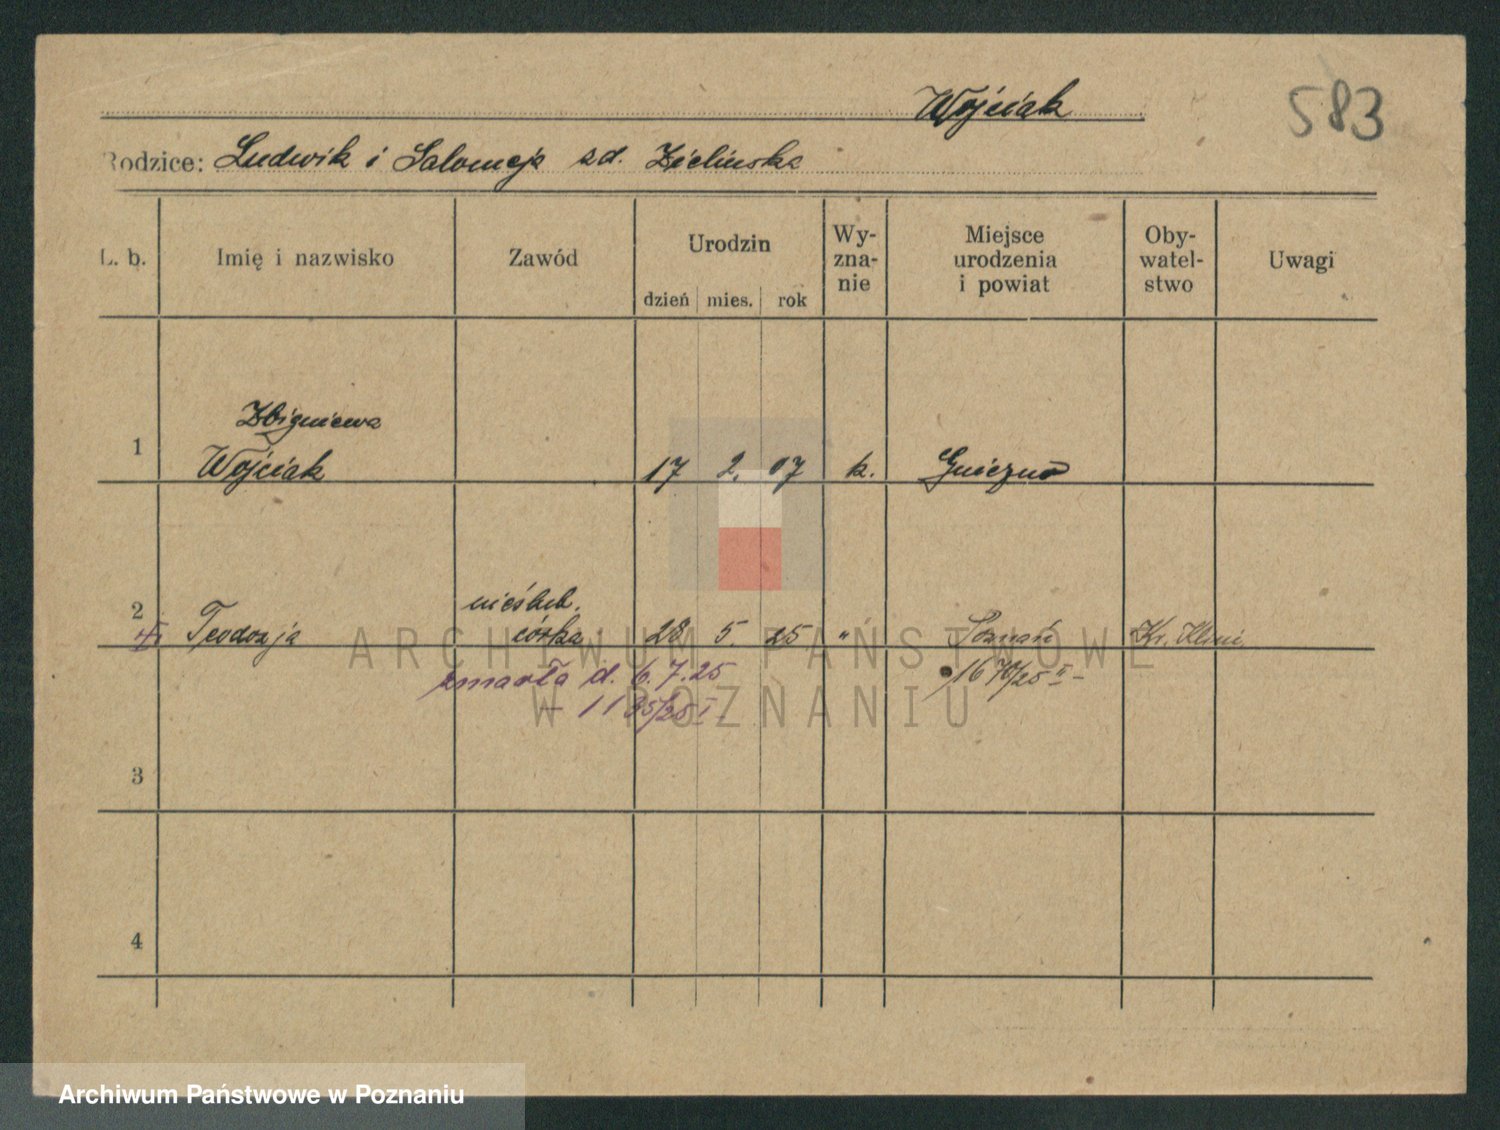 Wojciak
583
Rodzice: Ludwik i Salomeja zd. Zielińska
L. b.
Imię i nazwisko
Zawód
Urodzin
dzień mies. rok
Wy-
zna-
nie
Miejsce
urodzenia
i powiat
Oby-
watel-
stwo
Uwagi
1
Zbigniewa
Wojciak
17 2. 07 k. Gniezno
2
nieślub.
Teodozja córka 28. 5. 25. " Poznań
zmarła d. 6.7.25
1670/25 II -
- 1135/25 I -
3
4
ARCHIWUM PAŃSTWOWE
W POZNANIU
Archiwum Państwowe w Poznaniu